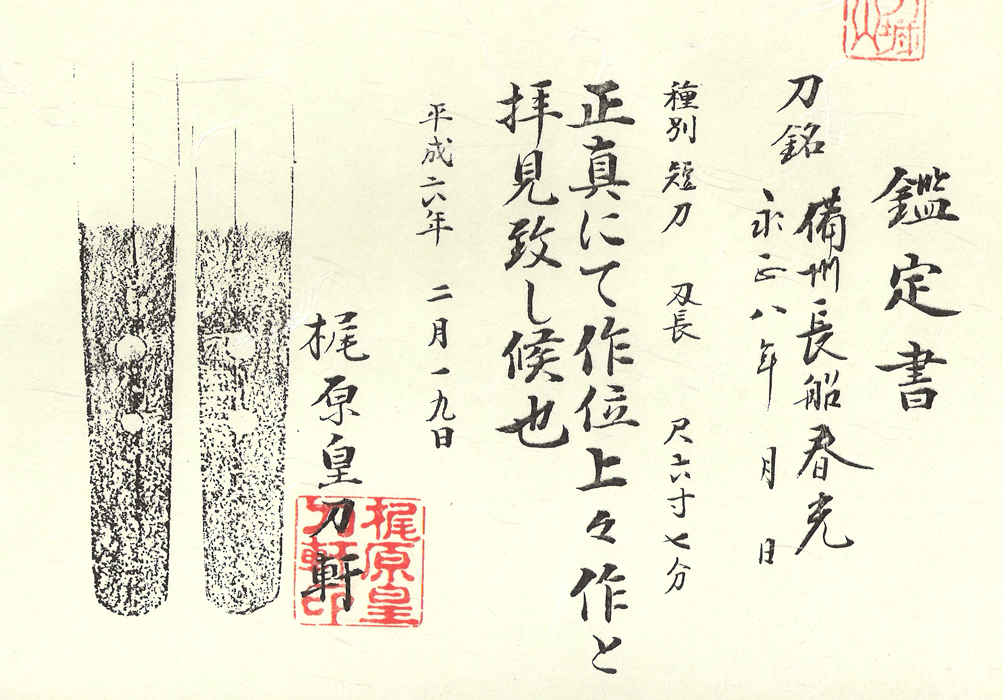 鑑定書
刀銘 備州長船春光
永正八年 月 日
種別 短刀 刃長 尺六寸七分
正真にて作位上々作と
拝見致し候也
平成六年 二月一九日
梶原皇刀軒
梶原皇刀軒印